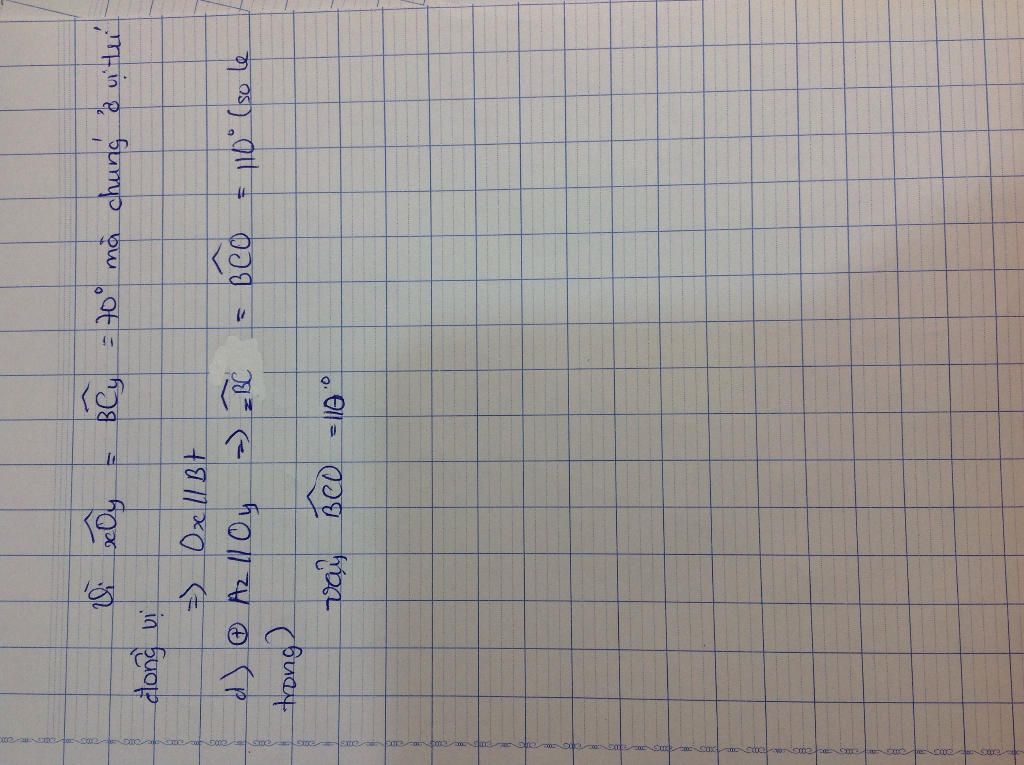 Vì xÔy = BĈy = 70° mà chúng ở vị trí
đồng vị
=> Ox // Bt
d) ⊕ Az // Oy => = BC = BĈO = 110° (so le
trong)
vậy BĈO = 110°